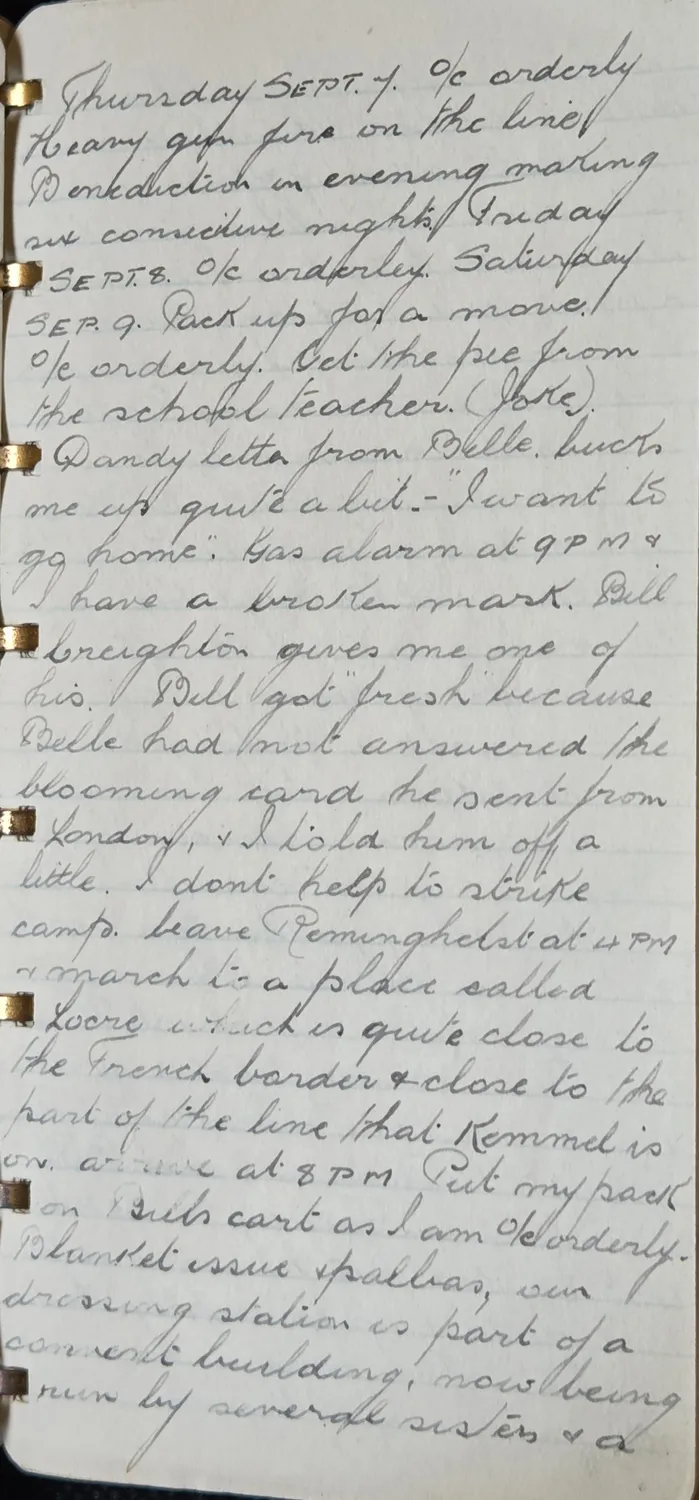 Thursday SEPT. 7. O/c orderly
Heavy gun fire on the line
Benediction in evening making
six consecitive nights. Friday
SEPT. 8. O/c orderley. Saturday
SEP. 9. Pack up for a move.
O/c orderly. Get the pie from
the school teacher. (Joke).
Dandy letter from Belle. bucks
me up quite a bit - "I want to
go home". Gas alarm at 9 PM &
I have a broken mask. Bill
Creighton gives me one of
his. Bill got "fresh" because
Belle had not answered the
blooming card he sent from
London, & I told him off a
little. I dont help to strike
camp. Leave Reminghelst at 4 PM
& march to a place called
Locre which is quite close to
the French border & close to the
part of the line that Kemmel is
on. arrive at 8 PM Put my pack
on Bills cart as I am O/c orderly.
Blanket issue & pallias, our
dressing station is part of a
convent building, now being
run by several sisters & a